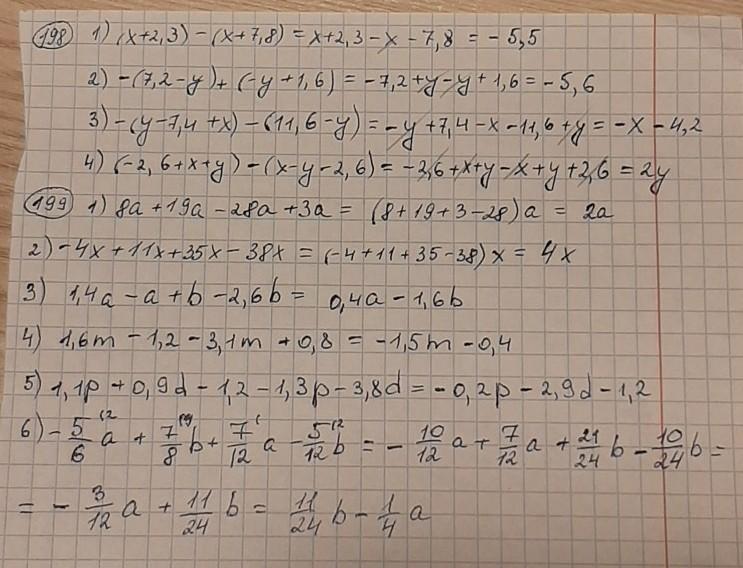 198 1) (x+2,3) - (x+7,8) = x+2,3-x-7,8 = -5,5
2) -(7,2-y)+(-y+1,6) = -7,2+y-y+1,6 = -5,6
3) -(y-7,4+x)-(11,6-y) = -y+7,4-x-11,6+y = -x-4,2
4) (-2,6+x+y)-(x-y-2,6) = -2,6+x+y-x+y+2,6 = 2y
199 1) 8a+19a-28a+3a = (8+19+3-28)a = 2a
2) -4x+11x+35x-38x = (-4+11+35-38)x = 4x
3) 1,4a-a+b-2,6b = 0,4a-1,6b
4) 1,6m-1,2-3,1m+0,8 = -1,5m-0,4
5) 1,1p+0,9d-1,2-1,3p-3,8d = -0,2p-2,9d-1,2
6) -5/6 a + 7/8 b + 7/12 a - 5/12 b = -10/12 a + 7/12 a + 21/24 b - 10/24 b =
= -3/12 a + 11/24 b = 11/24 b - 1/4 a